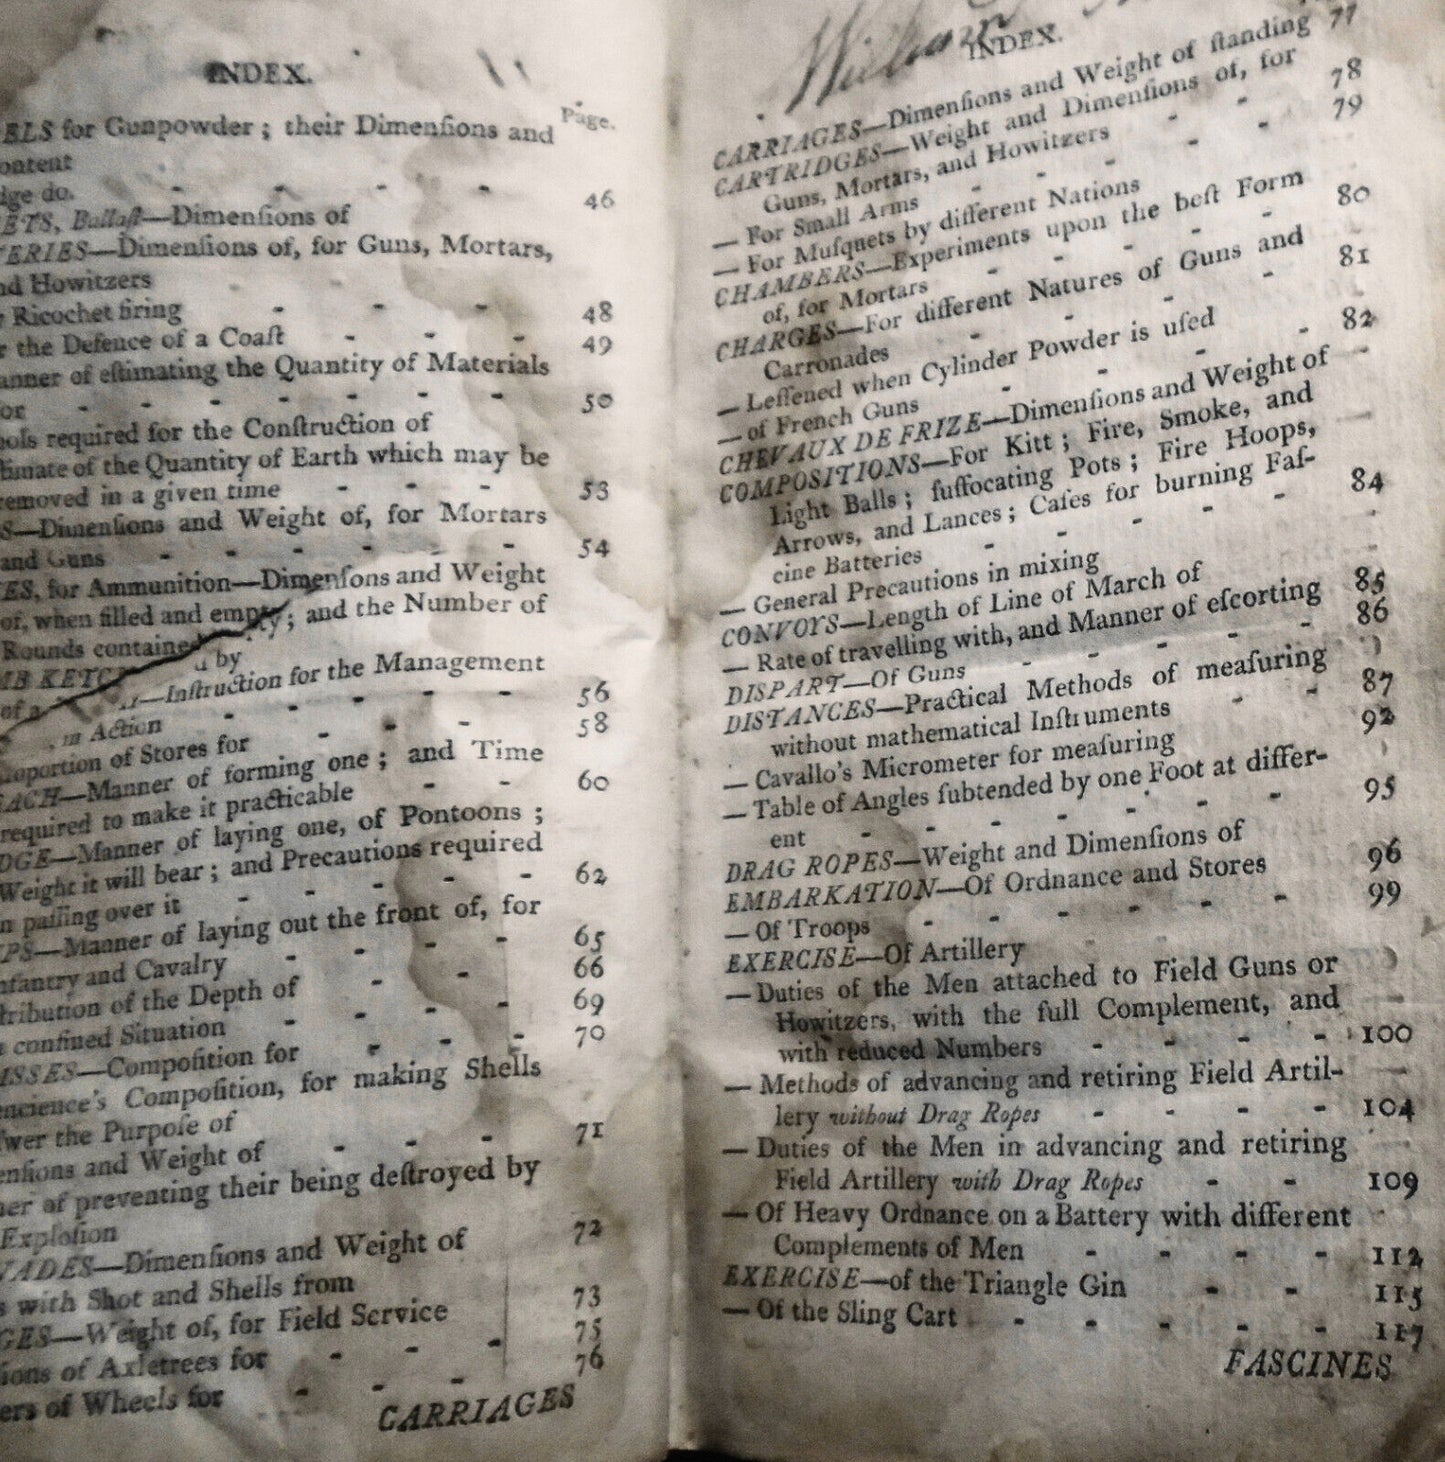 INDEX.
Page.
ELS for Gunpowder; their Dimenſions and
ontent
dge do. - - - - 46
ETS, Ballaſt—Dimenſions of
TERIES—Dimenſions of, for Guns, Mortars,
nd Howitzers
r Ricochet firing - - - 48
r the Defence of a Coaſt - - - 49
anner of eſtimating the Quantity of Materials
or - - - - - - - - 50
ools required for the Conſtruction of
timate of the Quantity of Earth which may be
removed in a given time - - - 53
S—Dimenſions and Weight of, for Mortars
and Guns - - - - - - 54
ES, for Ammunition—Dimenſons and Weight
of, when filled and empty; and the Number of
Rounds contained by
MB KETCH—Inſtruction for the Management
of a in Action - - - - 56
roportion of Stores for - - - 58
EACH—Manner of forming one; and Time
required to make it practicable - - 60
DGE—Manner of laying one, of Pontoons;
Weight it will bear; and Precautions required
n paſſing over it - - - - - 62
MPS—Manner of laying out the front of, for
nfantry and Cavalry - - - 65
tribution of the Depth of - - 66
a confined Situation - - - 69
ASSES—Compoſition for - - - 70
encience's Compoſition, for making Shells
ſwer the Purpoſe of
enſions and Weight of - - - 71
ner of preventing their being deſtroyed by
Exploſion
NADES—Dimenſions and Weight of 72
s with Shot and Shells from
GES—Weight of, for Field Service 73
ſions of Axletrees for - - - 75
ers of Wheels for - - - 76
CARRIAGES
William
INDEX.
CARRIAGES—Dimenſions and Weight of ſtanding 77
CARTRIDGES—Weight and Dimenſions of, for
Guns, Mortars, and Howitzers - - 78
— For Small Arms - - - - 79
— For Muſquets by different Nations
CHAMBERS—Experiments upon the beſt Form
of, for Mortars - - - - - 80
CHARGES—For different Natures of Guns and
Carronades - - - - 81
— Leſſened when Cylinder Powder is uſed
— of French Guns - - - - 82
CHEVAUX DE FRIZE—Dimenſions and Weight of
COMPOSITIONS—For Kitt; Fire, Smoke, and
Light Balls; ſuffocating Pots; Fire Hoops,
Arrows, and Lances; Caſes for burning Faſ-
cine Batteries - - - - - 84
— General Precautions in mixing
CONVOYS—Length of Line of March of
— Rate of travelling with, and Manner of eſcorting 85
DISPART—Of Guns - - - - - 86
DISTANCES—Practical Methods of meaſuring
without mathematical Inſtruments - - 87
— Cavallo's Micrometer for meaſuring 92
— Table of Angles ſubtended by one Foot at differ-
ent - - - - - - 95
DRAG ROPES—Weight and Dimenſions of
EMBARKATION—Of Ordnance and Stores 96
— Of Troops - - - - - - 99
EXERCISE—Of Artillery
— Duties of the Men attached to Field Guns or
Howitzers, with the full Complement, and
with reduced Numbers - - - - 100
— Methods of advancing and retiring Field Artil-
lery without Drag Ropes - - - - 104
— Duties of the Men in advancing and retiring
Field Artillery with Drag Ropes - - 109
— Of Heavy Ordnance on a Battery with different
Complements of Men - - - - 112
EXERCISE—of the Triangle Gin - - 115
— Of the Sling Cart - - - - - 117
FASCINES